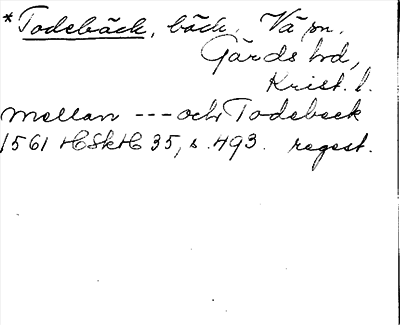 *Todebäck, bäck. Vä sn.
Gärds hd,
Krist. l.
mellan --- och Todebeck
1561 HSkH 35, s. 493. regest.